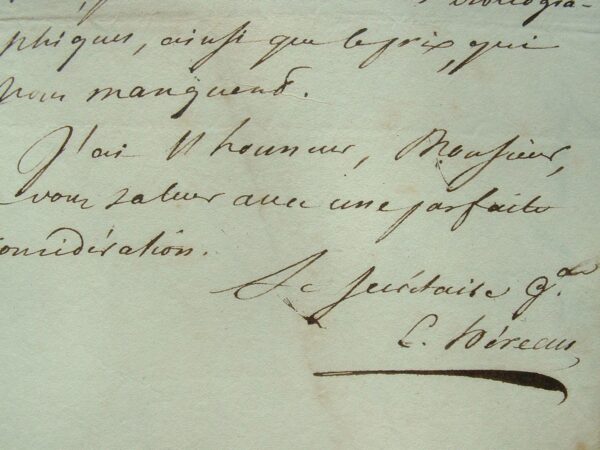 bibliogra-
phiques, ainsi que le prix, qui
nous manquent.
J'ai l'honneur, Monsieur,
vous saluer avec une parfaite
considération.
Le secrétaire g.al
E. Héreau